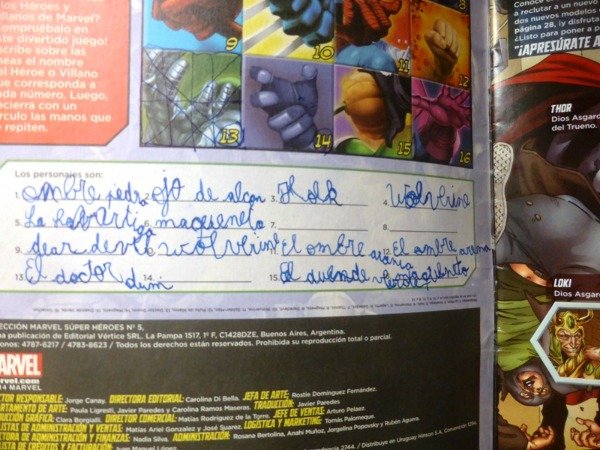 los Héroes y
villanos de Marvel?
Compruébalo en
este divertido juego!
scribe sobre las
neas el nombre
el Héroe o Villano
ue corresponda a
da número. Luego,
cierra con un
rculo las manos que
repiten.
9 10 11 12
13 14 15 16
Los personajes son:
1. ombre pedra 2. ojo de alcon 3. Holk 4. wolverine
5. La 6. maceseneto 7. 8.
9. dear devil 10. wolverine 11. El ombre arania 12. El ombre arania
13. El doctor dum 14. 15. El duende
Conoce
a reclutar a un nuevo
dos nuevos modelos
página 28, ¡y disfruta
¿Listo para poner a p
¡APRESÚRATE A
THOR
Dios Asgard
del Trueno.
LOKI
Dios Asgard
ECCIÓN MARVEL SÚPER HÉROES N° 5,
na publicación de Editorial Vértice SRL. La Pampa 1517, 1º F, C1428DZE, Buenos Aires, Argentina.
fonos: 4787-6217 / 4783-8623 / Todos los derechos están reservados. Prohibida su reproducción total o parcial.
MARVEL
rvel.com
14 MARVEL
CTOR RESPONSABLE: Jorge Canay. DIRECTORA EDITORIAL: Carolina Di Bella. JEFA DE ARTE: Rostie Domínguez Fernández.
ARTAMENTO DE ARTE: Paula Ligresti, Javier Paredes y Carolina Ramos Maseras. TRADUCCIÓN: Javier Paredes.
UCCIÓN GRÁFICA: Clara Borgialli. DIRECTOR COMERCIAL: Matías Rodríguez de la Torre. JEFE DE VENTAS: Arturo Pelaez.
LISTAS DE ADMINISTRACIÓN Y VENTAS: Matías Ariel Gonzalez y José Suarez. LOGÍSTICA Y MARKETING: Tomás Palomeque.
CTORA DE ADMINISTRACIÓN Y FINANZAS: Nadia Silva. ADMINISTRACIÓN: Rosana Bertolina, Anahí Muñoz, Jorgelina Popovsky y Rubén Aguna.
LISTA DE CRÉDITOS Y FACTURACIÓN: Juan Manuel López.